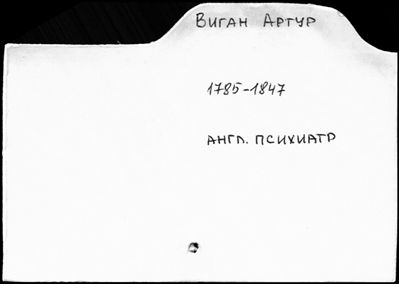 Виган Артур
1785-1847
англ. психиатр